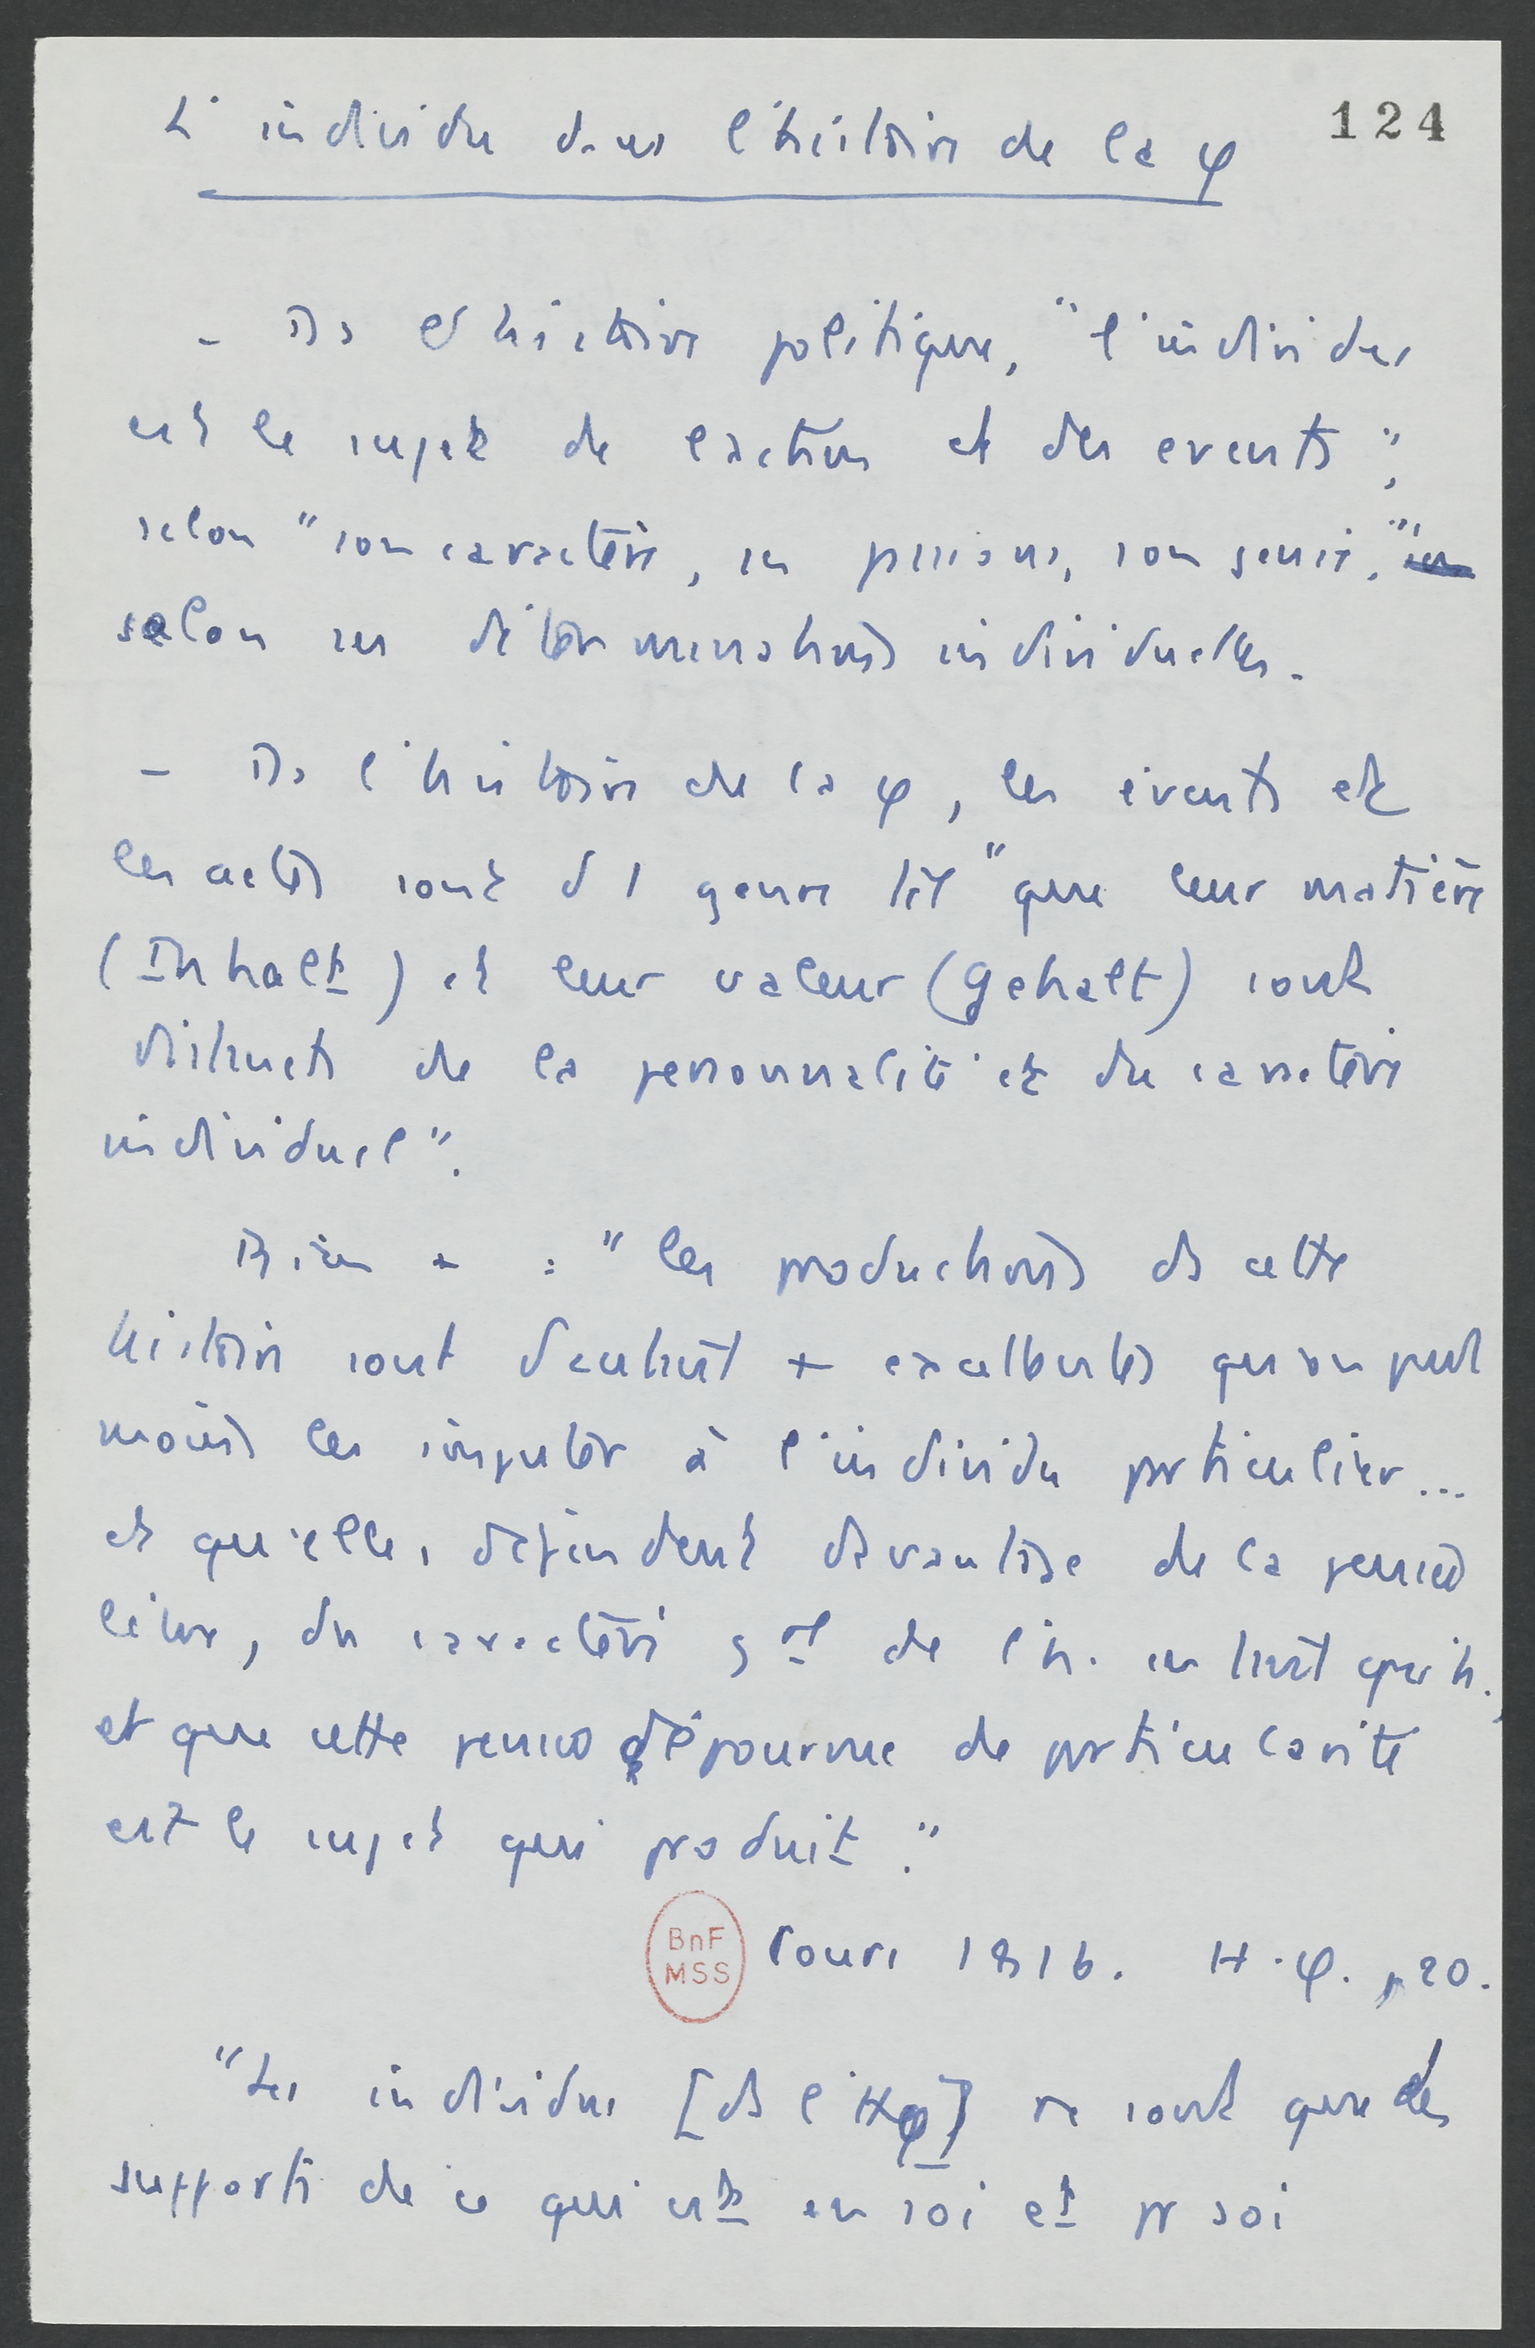 124
L'individu dans l'histoire de la φ
- Ds l'histoire politique, "l'individu
est le sujet de l'action et des events",
selon "son caractère, ses passions, son génie,"
selon ses déterminations individuelles.
- Ds l'histoire de la φ, les events et
les actes sont d'1 genre tel "que leur matière
(Inhalt) et leur valeur (Gehalt) sont
distincts de la personnalité et du caractère
individuel".
Bien + : "les productions ds cette
histoire sont d'autant + excellentes qu'on peut
moins les imputer à l'individu particulier...
et qu'elles dépendent davantage de la pensée
libre, du caractère gal de l'h. en tant que h.,
et que cette pensée dépourvue de particularité
est le sujet qui produit."
BnF
MSS
Cours 1816. H.φ. p 20.
"Les individus [ds l'Hφ] ne sont que des
supports de ce qui est en soi et pr soi